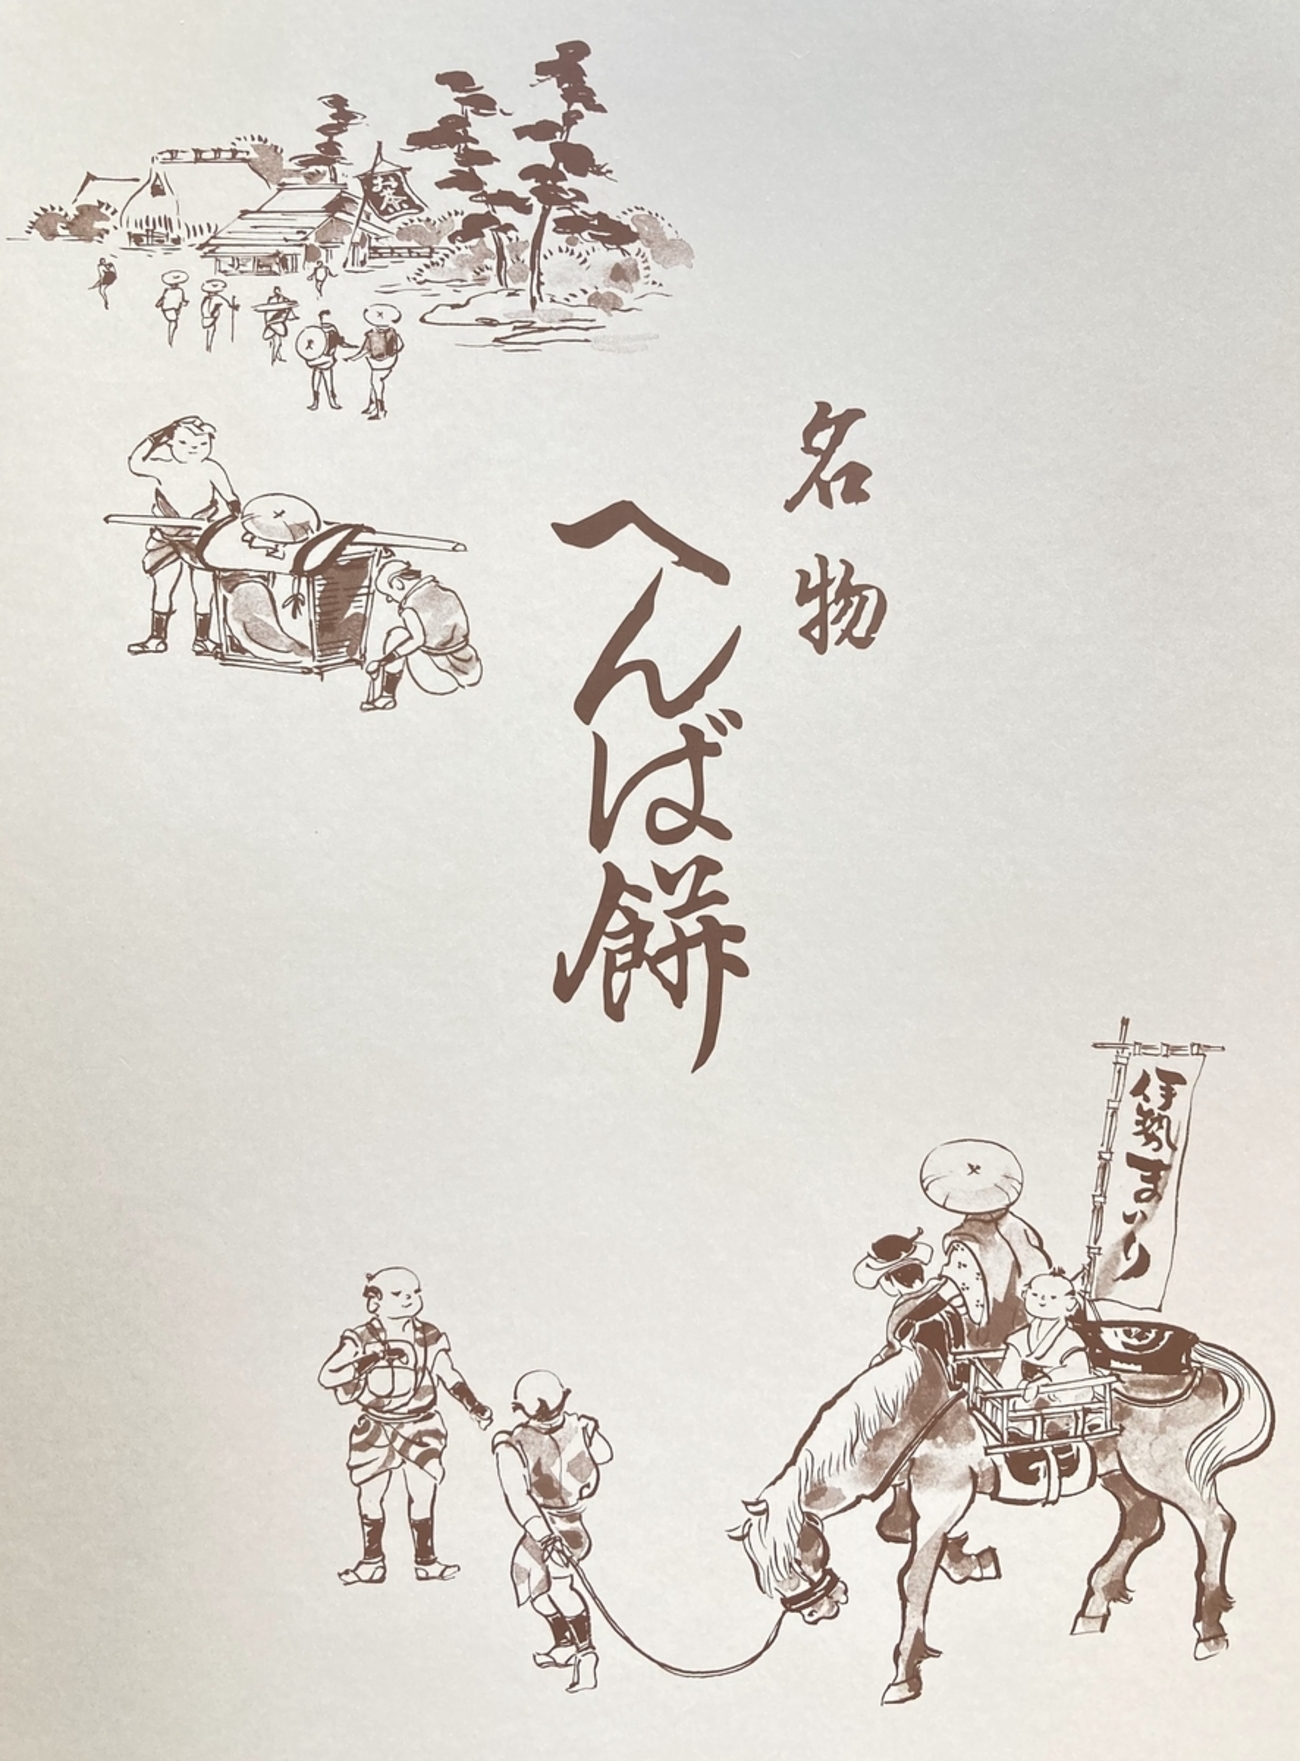 名物
へんば餅
伊勢まいり